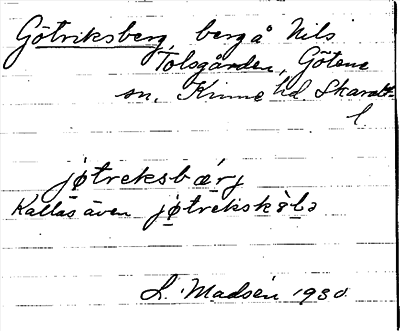 Götriksberg, berg å Nils
Tolsgården, Götene
sn, Kinne hd Skarab.
l
jøtreksbærj
Kallas även jøtrekskùlə
L. Madsén 1930.